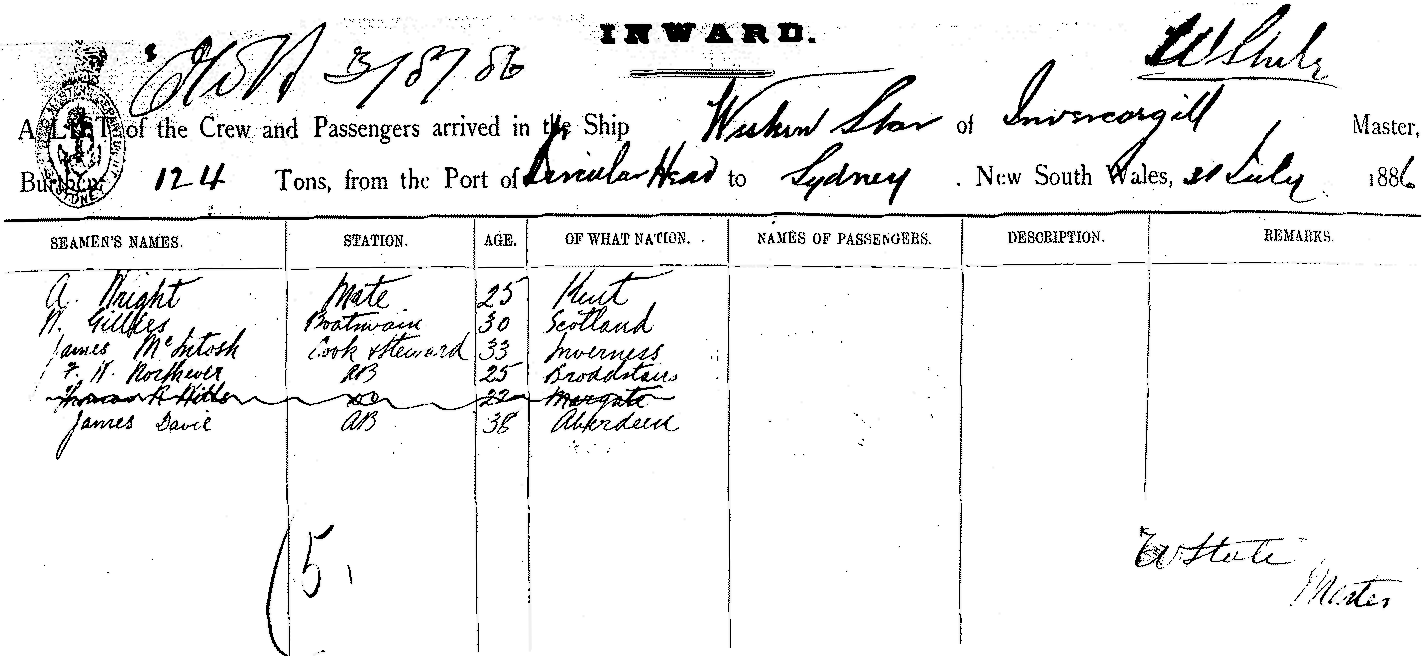 INWARD.
3/8/86
A LIST of the Crew and Passengers arrived in the Ship Western Star of Invercargill Master,
Burthen 124 Tons, from the Port of Circular Head to Sydney . New South Wales, 31 July 1886
SEAMEN'S NAMES. STATION. AGE. OF WHAT NATION. NAMES OF PASSENGERS. DESCRIPTION. REMARKS.
A. Wright Mate 25 Kent
W. Gillies Boatswain 30 Scotland
James McIntosh Cook & Steward 33 Inverness
F. W. AB 25 Broadstairs
22 Margate
James Davie AB 38 Aberdeen
5
Master